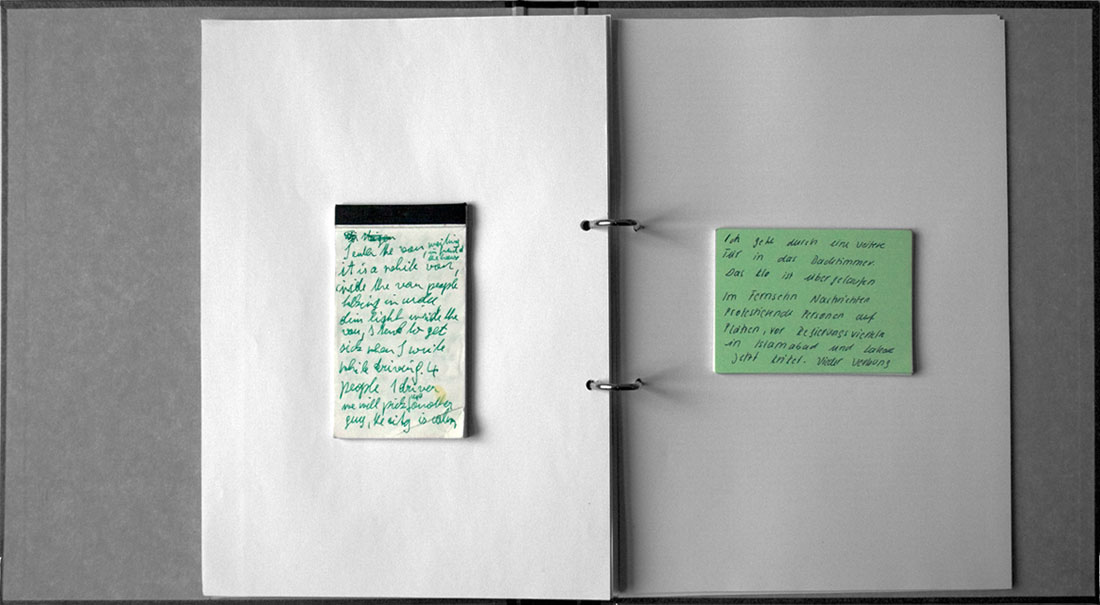 I enter the van waiting
in front of
the house
it is a white van,
inside the van people
talking in urdu
dim light inside the
van, I tend to get
sick when I write
while driving. 4
people. 1 driver
we will pick another
guy, the city is calm
Ich gehe durch eine weitere
Tür in das Badezimmer.
Das Klo ist übergelaufen
Im Fernsehn Nachrichten
Protestierende Personen auf
Plätzen, vor Regierungsvierteln
in Islamabad und Lahore
jetzt Kricket. Wieder Werbung